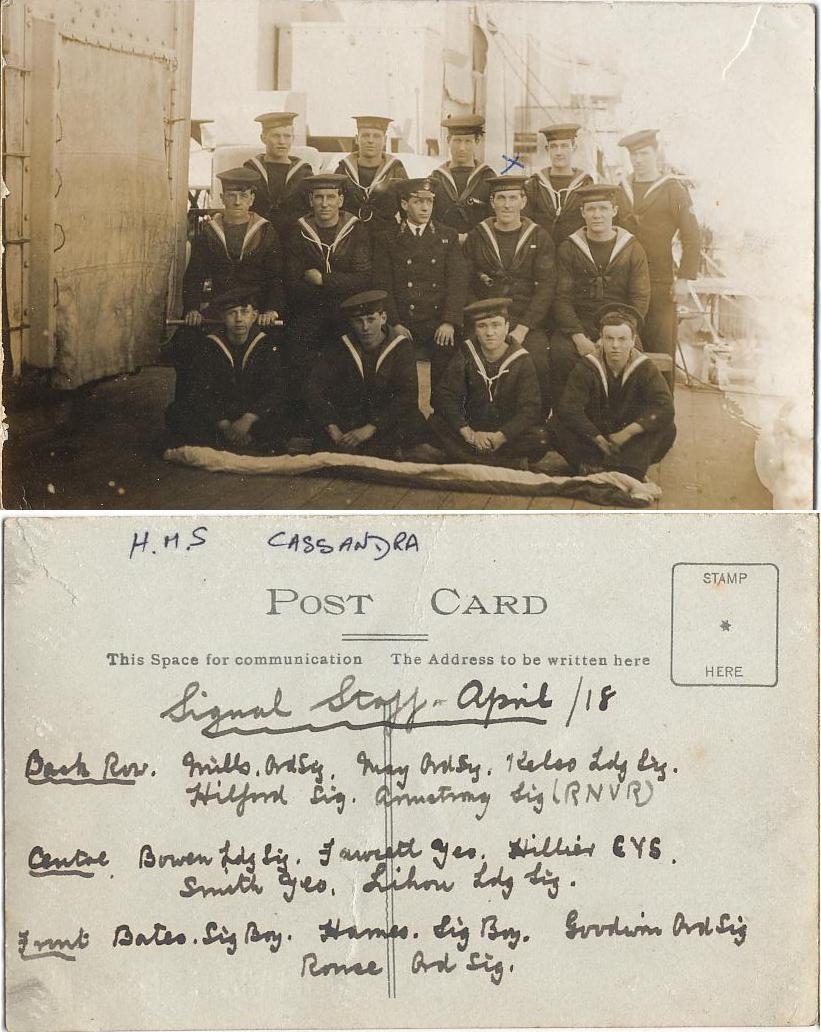 H.M.S CASSANDRA
POST CARD
STAMP
HERE
This Space for communication The Address to be written here
Signal Staff - April /18
Back Row. Mills. Ord Sig. May Ord Sig. Kelso Ldg Sig.
Hilford Sig. Armstrong Sig (RNVR)
Central Bowen Ldg Sig. Fawcett Yeo. Hillier CYS.
Smith Yeo. Lihou Ldg Sig.
Front Bates. Sig Boy. Hames. Sig Boy. Goodwin Ord Sig
Ronse Ord Sig.